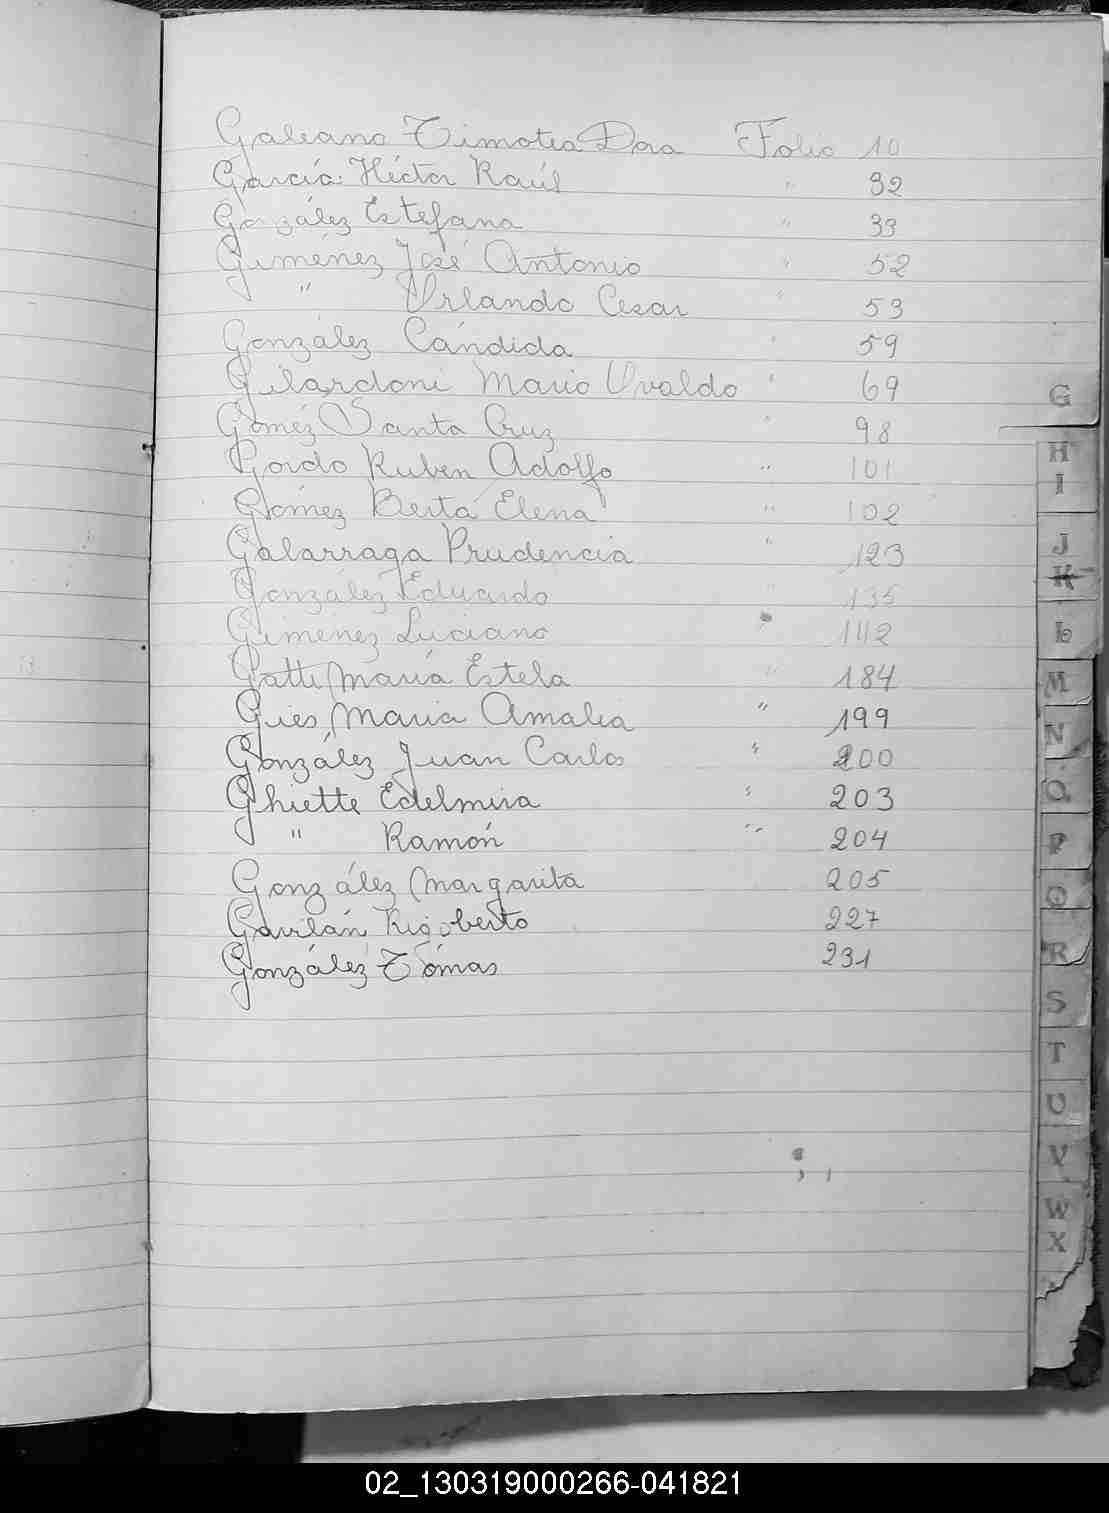 Galeano Timotea Dora Folio 10
García Héctor Raúl " 32
González Estefana " 33
Giménez José Antonio " 52
" Orlando Cesar " 53
González Cándida " 59
Gilardoni Mario Uvaldo " 69
Gómez Santa Cruz " 98
Gordo Ruben Adolfo " 101
Gómez Berta Elena " 102
Galarraga Prudencia " 123
González Eduardo " 135
Giménez Luciano " 142
Gatti María Estela " 184
Gies María Amalia " 199
González Juan Carlos " 200
Ghiette Edelmira " 203
" Ramón " 204
González Margarita 205
Gavilán Rigoberto 227
González Tómas 231
G
H
I
J
K
L
M
N
O
P
Q
R
S
T
U
V
W
X
02_130319000266-041821